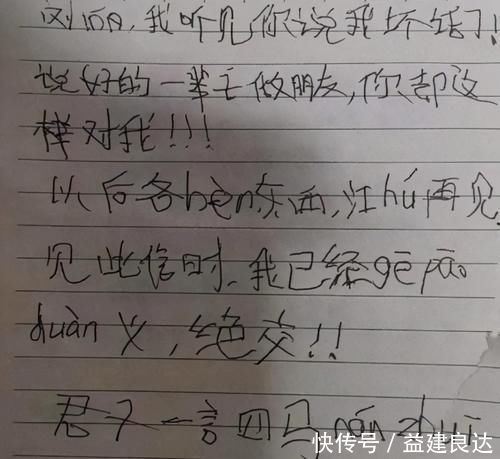 我听见你说我坏话了!
说好的一辈子做朋友,你却这
样对我!!!
以后各bèn东西,江hú再见
见此信时,我已经gē pāo
duàn义,绝交!!
君子一言四马nán zhuī
快传号／益建良达